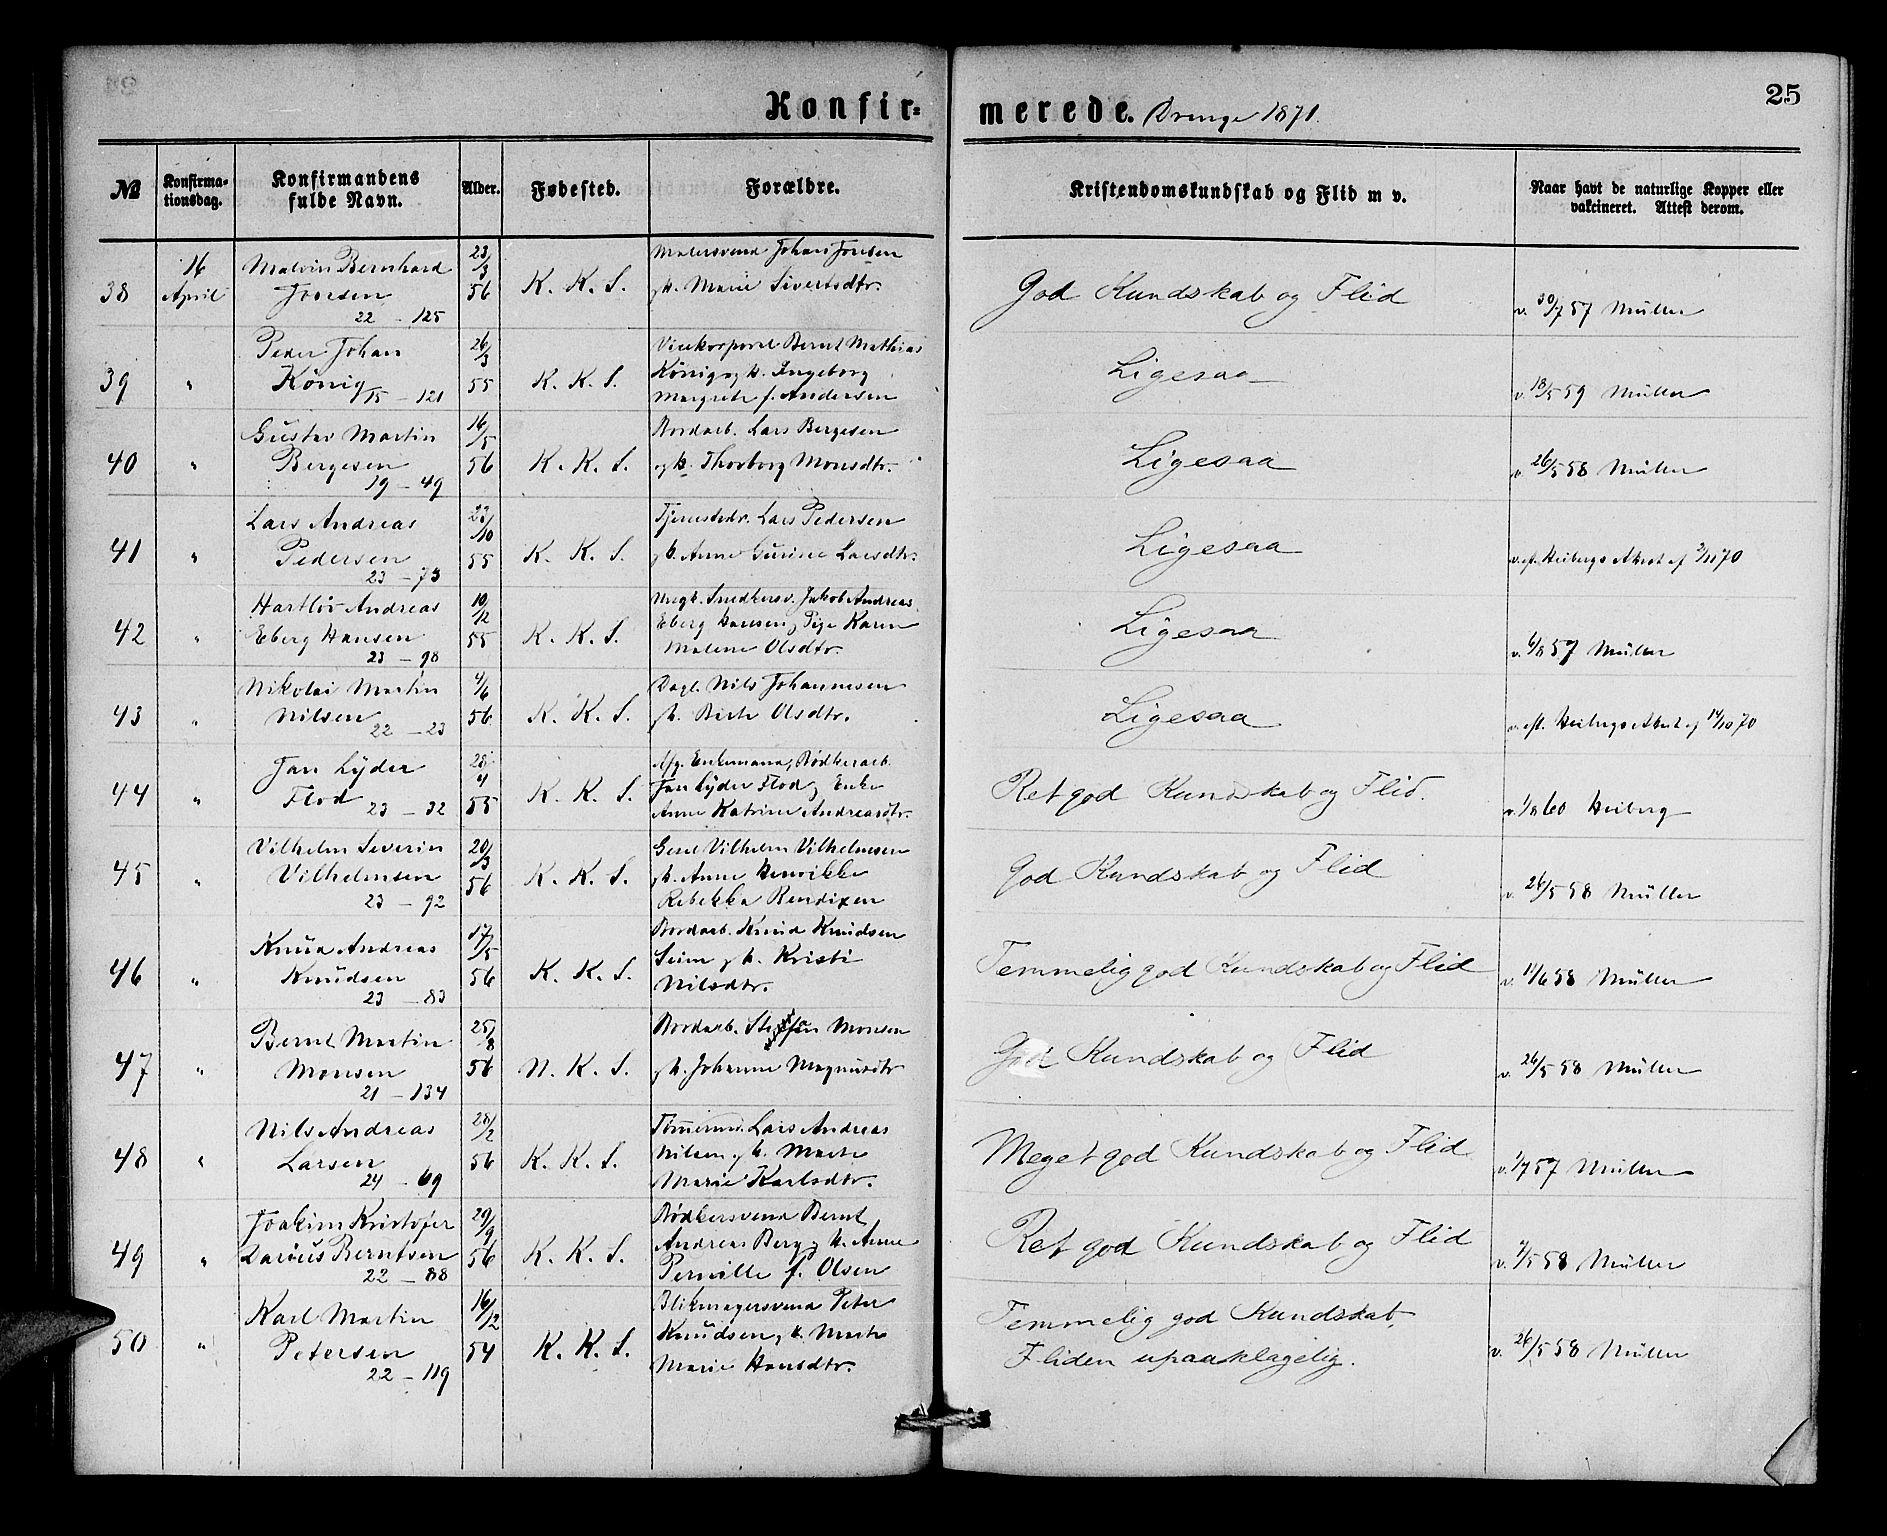 Konfirmerede. Drenge 1871.
25
№
Konfirmationsdag.
Konfirmandens fulde Navn.
Alder.
Fødested.
Forældre.
Kristendomskundskab og Flid m v.
Naar havt de naturlige Kopper eller vakcineret. Attest derom.
38 16 April Malvin Bernhard 23/3 56 K. K. S. Malersvend Johan Joresen
Joresen 22 - 125 og h. Marie Sivertsdtr. God Kundskab og Flid v. 30/7 57 Müller
39 " Peder Johan 26/3 55 K. K. S. Vicekorporal Bernt Mathias
König 15 - 121 König og h. Ingeborg Ligesaa v. 18/5 59 Müller
Margrete f. Andersen
40 " Gustav Martin 16/5 56 K. K. S. Bordarb. Lars Bergesen
Bergesen 19 - 49 og h. Thorborg Monsdtr. Ligesaa v. 26/5 58 Müller
41 " Lars Andreas 23/10 55 K. K. S. Tjenestedr. Lars Pedersen
Pedersen 23 - 73 og h. Anne Gurine Larsdtr. Ligesaa v. eft. Heibergs Attest af 2/11 70
42 " Hartløv Andreas 10/12 55 K. K. S. Ungk. Snedkersv. Jakob Andreas
Eberg Hansen 23 - 98 Eberg Hansen og Pige Karen Ligesaa v. 6/8 57 Müller
Malene Olsdtr.
43 " Nikolai Martin 4/6 56 K. K. S. Dagl. Nils Johannesen
Nilsen 22 - 23 og h. Berte Olsdtr. Ligesaa v. eft. Heibergs Attest af 14/10 70
44 " Jan Lyder 28/4 55 K. K. S. Afg. Enkemand, Bødkerarb.
Flod 23 - 32 Jan Lyder Flod og Enke Ret god Kundskab og Flid. v. 1/8 60 Heiberg
Anne Katrine Andreasdtr.
45 " Vilhelm Severin 20/3 56 K. K. S. Gevel Vilhelm Vilhelmsen
Vilhelmsen 23 - 92 og h. Anne Henrikke God Kundskab og Flid v. 26/5 58 Müller
Rebekka Bendixen
46 " Knud Andreas 17/5 56 K. K. S. Bordarb. Knud Knudsen
Knudsen 23 - 83 Seim og h. Kristi Temmelig god Kundskab og Flid v. 11/6 58 Müller
Nilsdtr.
47 " Bernt Martin 25/8 56 N. K. S. Bordarb. Monsen
Monsen 21 - 134 og h. Johanne Magnusdtr God Kundskab og Flid v. 26/5 58 Müller
48 " Nils Andreas 28/2 56 K. K. S. Tømermd. Lars Andreas
Larsen 24 - 69 Nilsen og h. Marte Meget god Kundskab og Flid v. 1/7 57 Müller
Marie Karlsdtr.
49 " Joakim Kristofer 29/9 56 K. K. S. Bødkersvend Bernt
Darius Berntsen 22 - 88 Andreas Berg og h. Anne Ret god Kundskab og Flid v. 7/5 58 Müller
Pernille f. Olsen
50 " Karl Martin 16/12 54 K. K. S. Blikmagersvend Peter
Petersen 22 - 119 Knudsen og h. Marte Temmelig god Kundskab,
Marie Hansdtr. Fliden upaaklagelig. v. 26/5 58 Müller